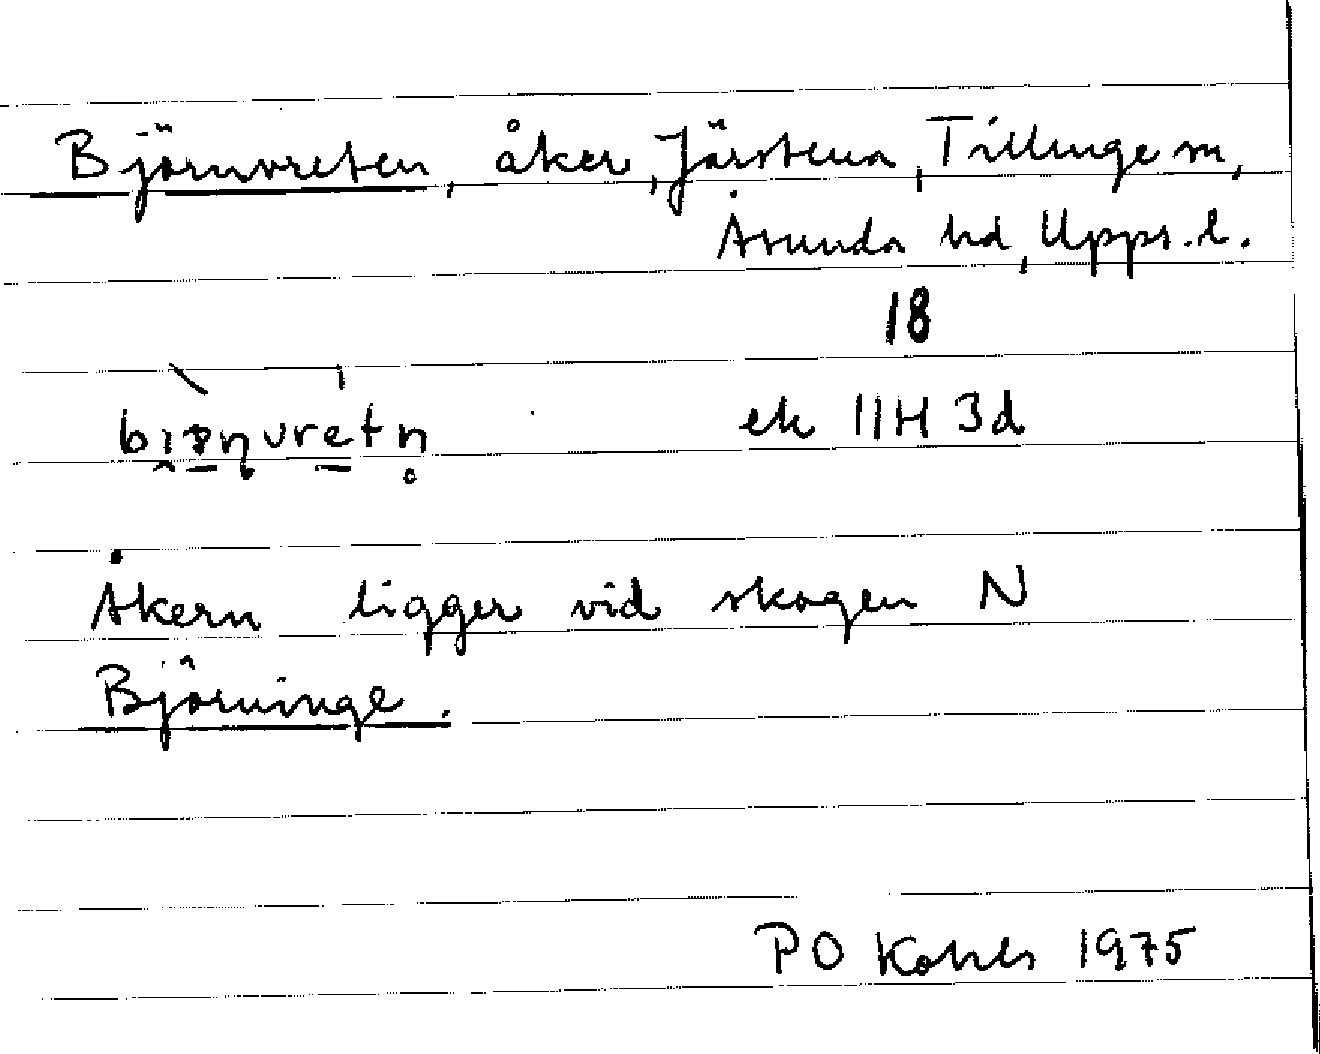 Björnvreten, åker, Järstena, Tillinge sn,
Åsunda hd, Upps. l.
18
ek 11H 3d
Åkern ligger vid skogen N
Björninge.
PO Kohls 1975